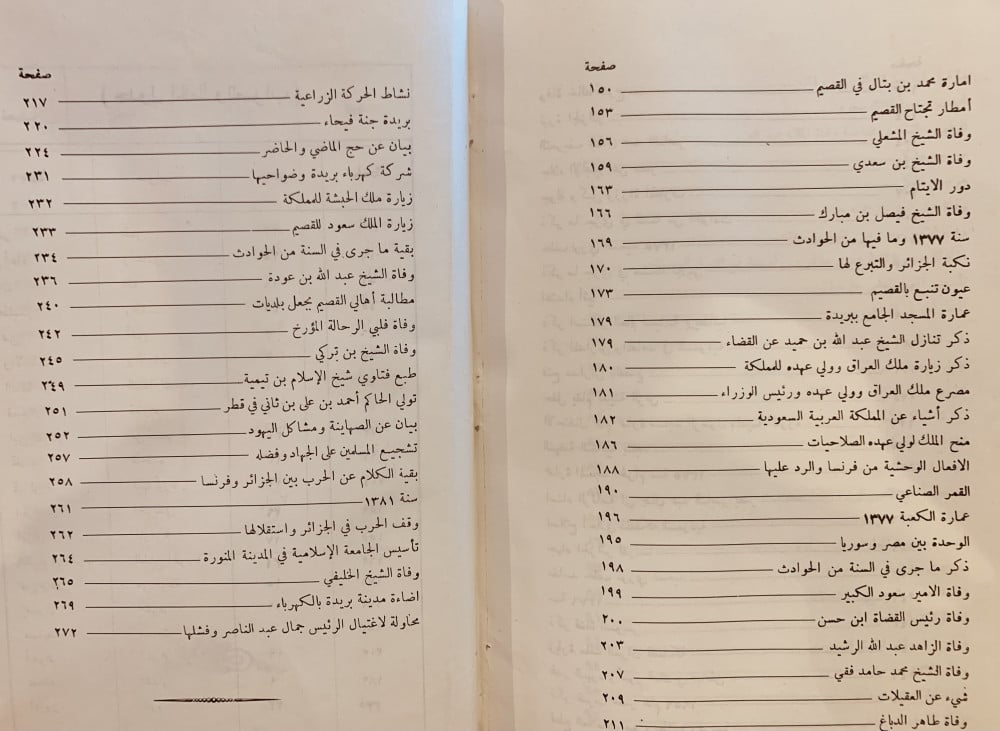 صفحة
امارة محمد بن بتال في القصيم ١٥٠
أمطار تجتاح القصيم ١٥٣
وفاة الشيخ المشعلي ١٥٦
وفاة الشيخ بن سعدي ١٥٩
دور الايتام ١٦٣
وفاة الشيخ فيصل بن مبارك ١٦٦
سنة ١٣٧٧ وما فيها من الحوادث ١٦٩
نكبة الجزائر والتبرع لها ١٧٠
عيون تنبع بالقصيم ١٧٣
عمارة المسجد الجامع ببريدة ١٧٩
ذكر تنازل الشيخ عبد الله بن حميد عن القضاء ١٧٩
ذكر زيارة ملك العراق وولي عهده للمملكة ١٨٠
مصرع ملك العراق وولي عهده ورئيس الوزراء ١٨١
ذكر أشياء عن المملكة العربية السعودية ١٨٢
منح الملك لولي عهده الصلاحيات ١٨٦
الافعال الوحشية من فرنسا والرد عليها ١٨٨
القمر الصناعي ١٩٠
عمارة الكعبة ١٣٧٧ ١٩٦
الوحدة بين مصر وسوريا ١٩٥
ذكر ما جرى في السنة من الحوادث ١٩٨
وفاة الامير سعود الكبير ١٩٩
وفاة رئيس القضاة ابن حسن ٢٠٠
وفاة الزاهد عبد الله الرشيد ٢٠٣
وفاة الشيخ محمد حامد فقي ٢٠٧
شيء عن العقيلات ٢٠٩
وفاة طاهر الدباغ ٢١١
صفحة
نشاط الحركة الزراعية ٢١٧
بريدة جنة فيحاء ٢٢٠
بيان عن حج الماضي والحاضر ٢٢٤
شركة كهرباء بريدة وضواحيها ٢٣١
زيارة ملك الحبشة للمملكة ٢٣٢
زيارة الملك سعود للقصيم ٢٣٣
بقية ما جرى في السنة من الحوادث ٢٣٤
وفاة الشيخ عبد الله بن عودة ٢٣٦
مطالبة أهالي القصيم بجعل بلديات ٢٤٠
وفاة فلبي الرحالة المؤرخ ٢٤٢
وفاة الشيخ بن تركي ٢٤٥
طبع فتاوي شيخ الإسلام بن تيمية ٢٤٩
تولي الحاكم أحمد بن على بن ثاني في قطر ٢٥١
بيان عن الصهاينة ومشاكل اليهود ٢٥٢
تشجيع المسلمين على الجهاد وفضله ٢٥٧
بقية الكلام عن الحرب بين الجزائر وفرنسا ٢٥٨
سنة ١٣٨١ ٢٦١
وقف الحرب في الجزائر واستقلالها ٢٦٢
تأسيس الجامعة الإسلامية في المدينة المنورة ٢٦٤
وفاة الشيخ الخليفي ٢٦٥
اضاءة مدينة بريدة بالكهرباء ٢٦٩
محاولة لاغتيال الرئيس جمال عبد الناصر وفشلها ٢٧٢